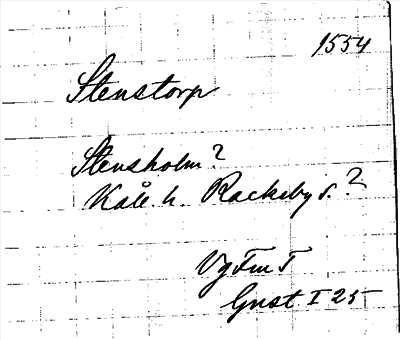 1554
Stenstorp
Stensholm?
Kåle h. Rackeby s.?
VgFmT
Gust I 25